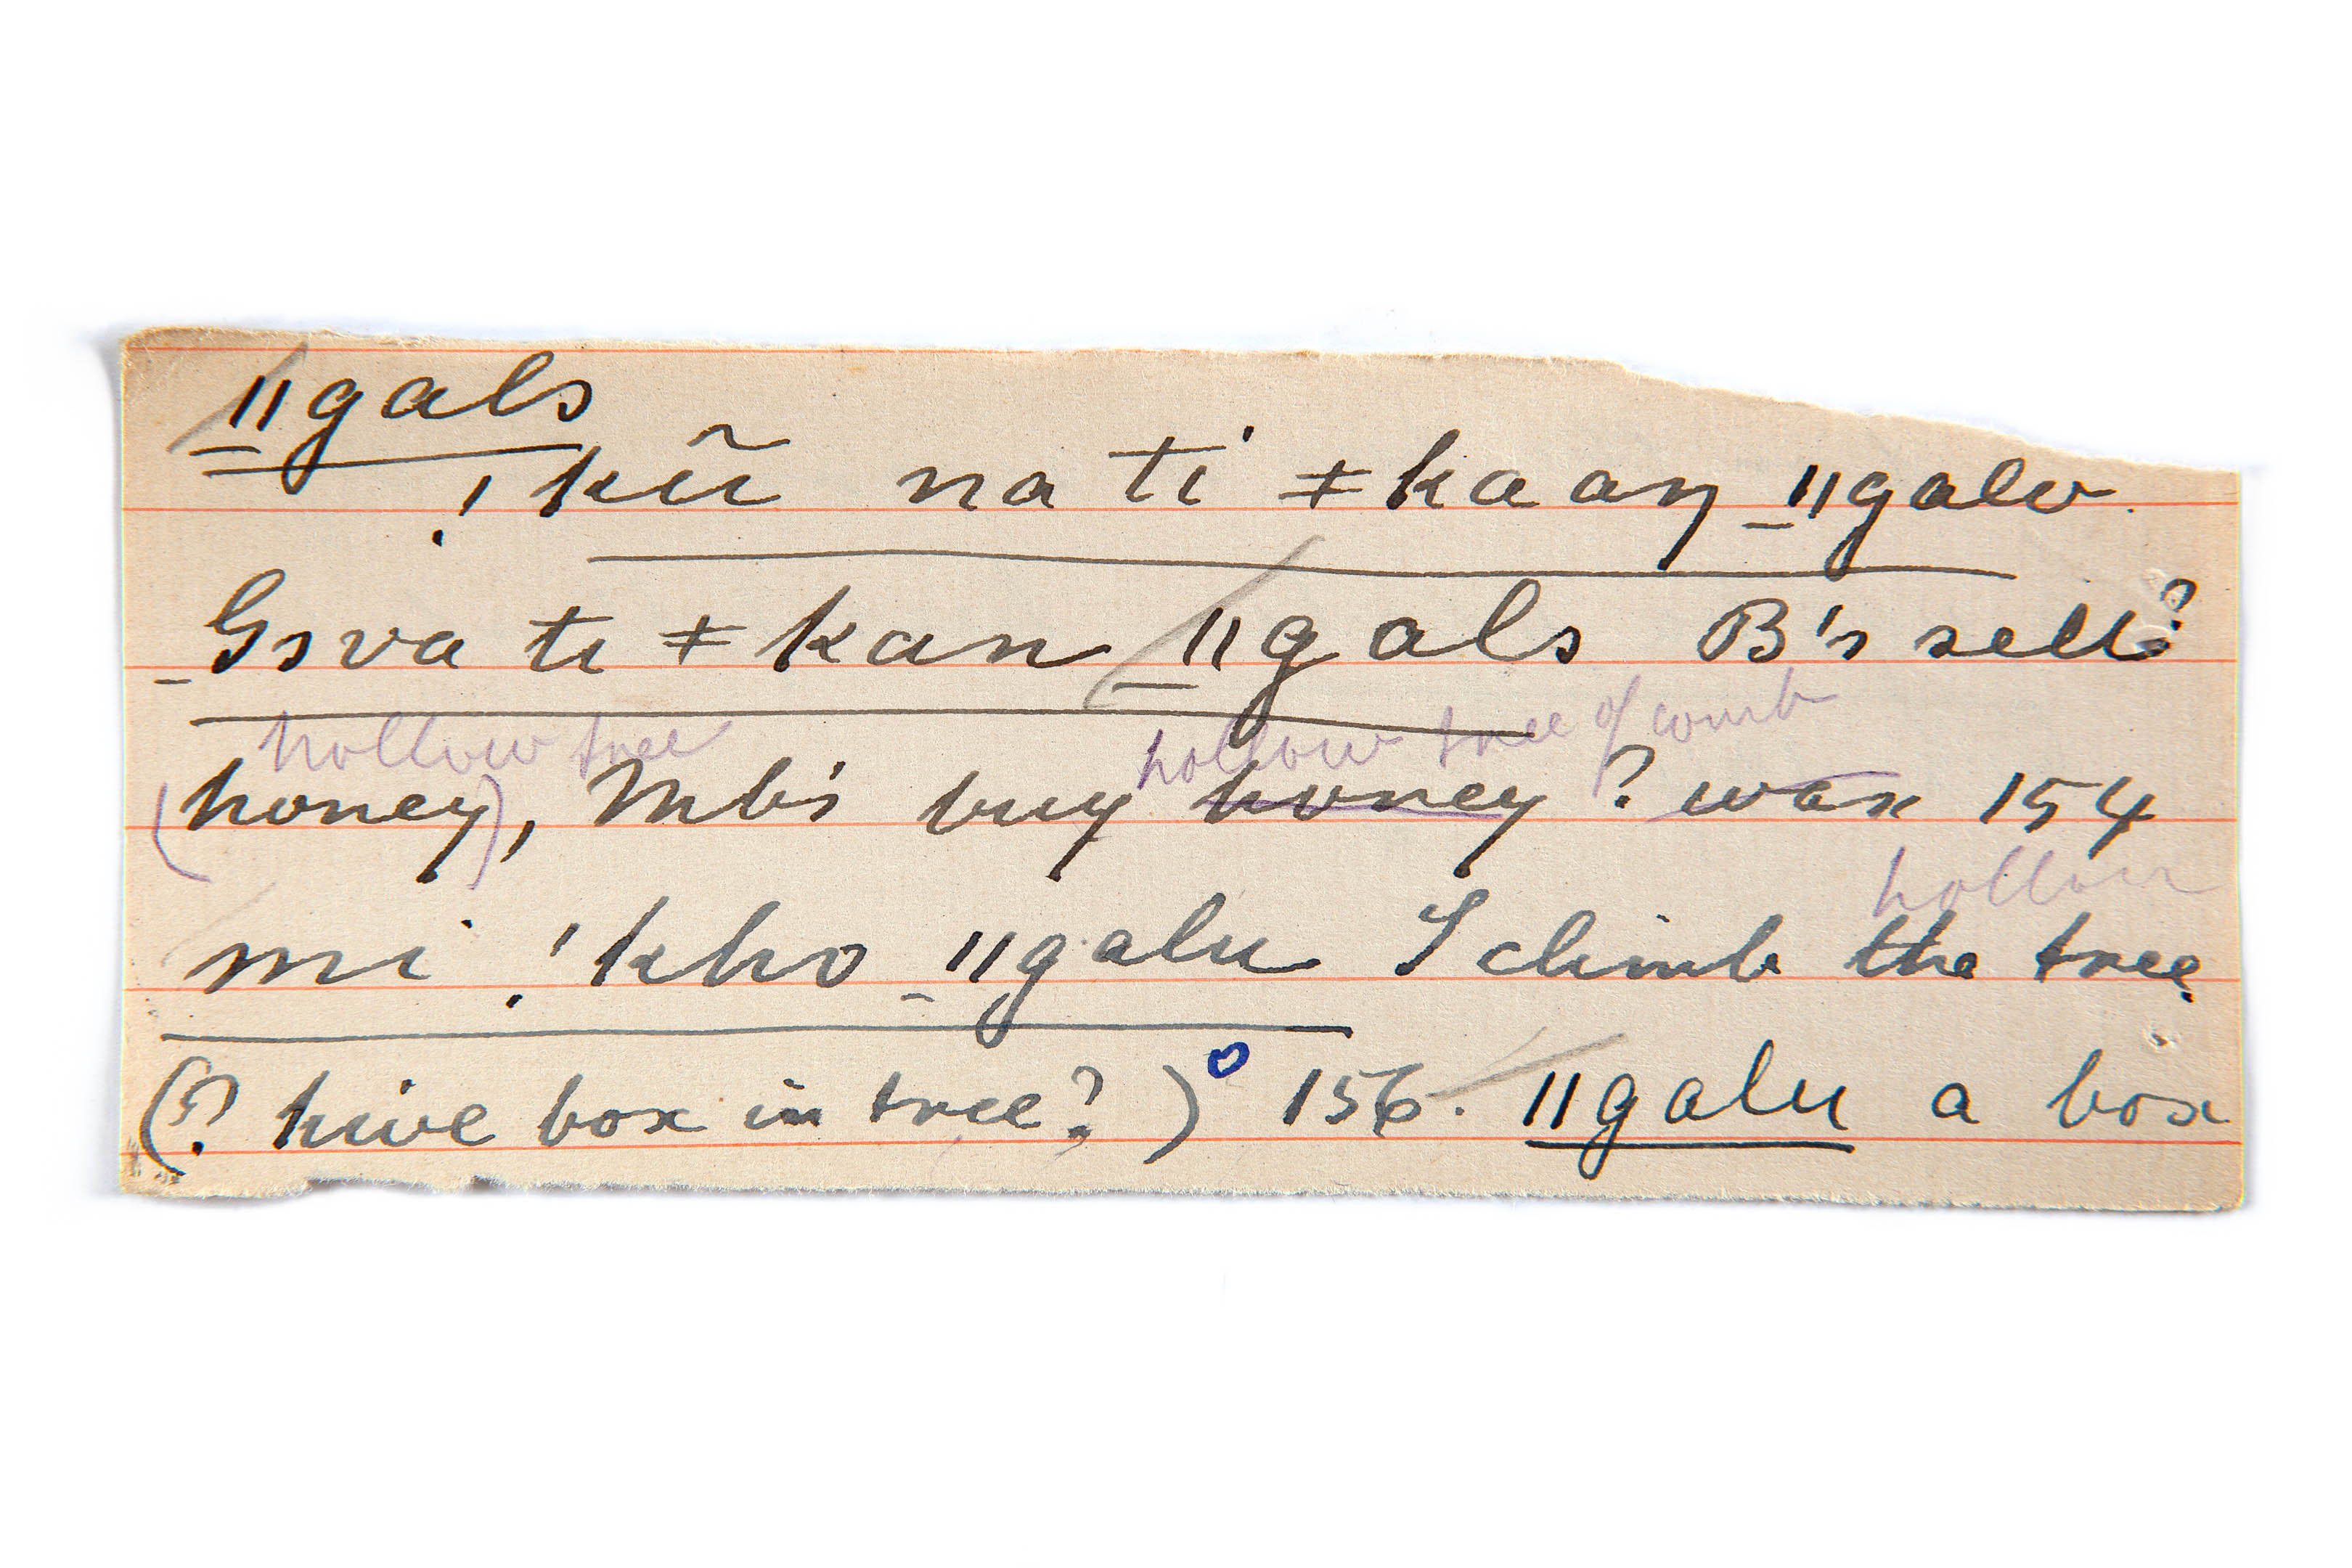 ǁgals
!kũ na ti ǂkaaŋ ǁgalo.
Gova ti ǂkan ǁgals B's sell?
hollow tree hollow tree of comb
(honey), Mb's buy honey ? wax 154
hollow
mi !kho ǁgalu I climb the tree.
(? hive box in tree? )° 156. ǁgalu a box